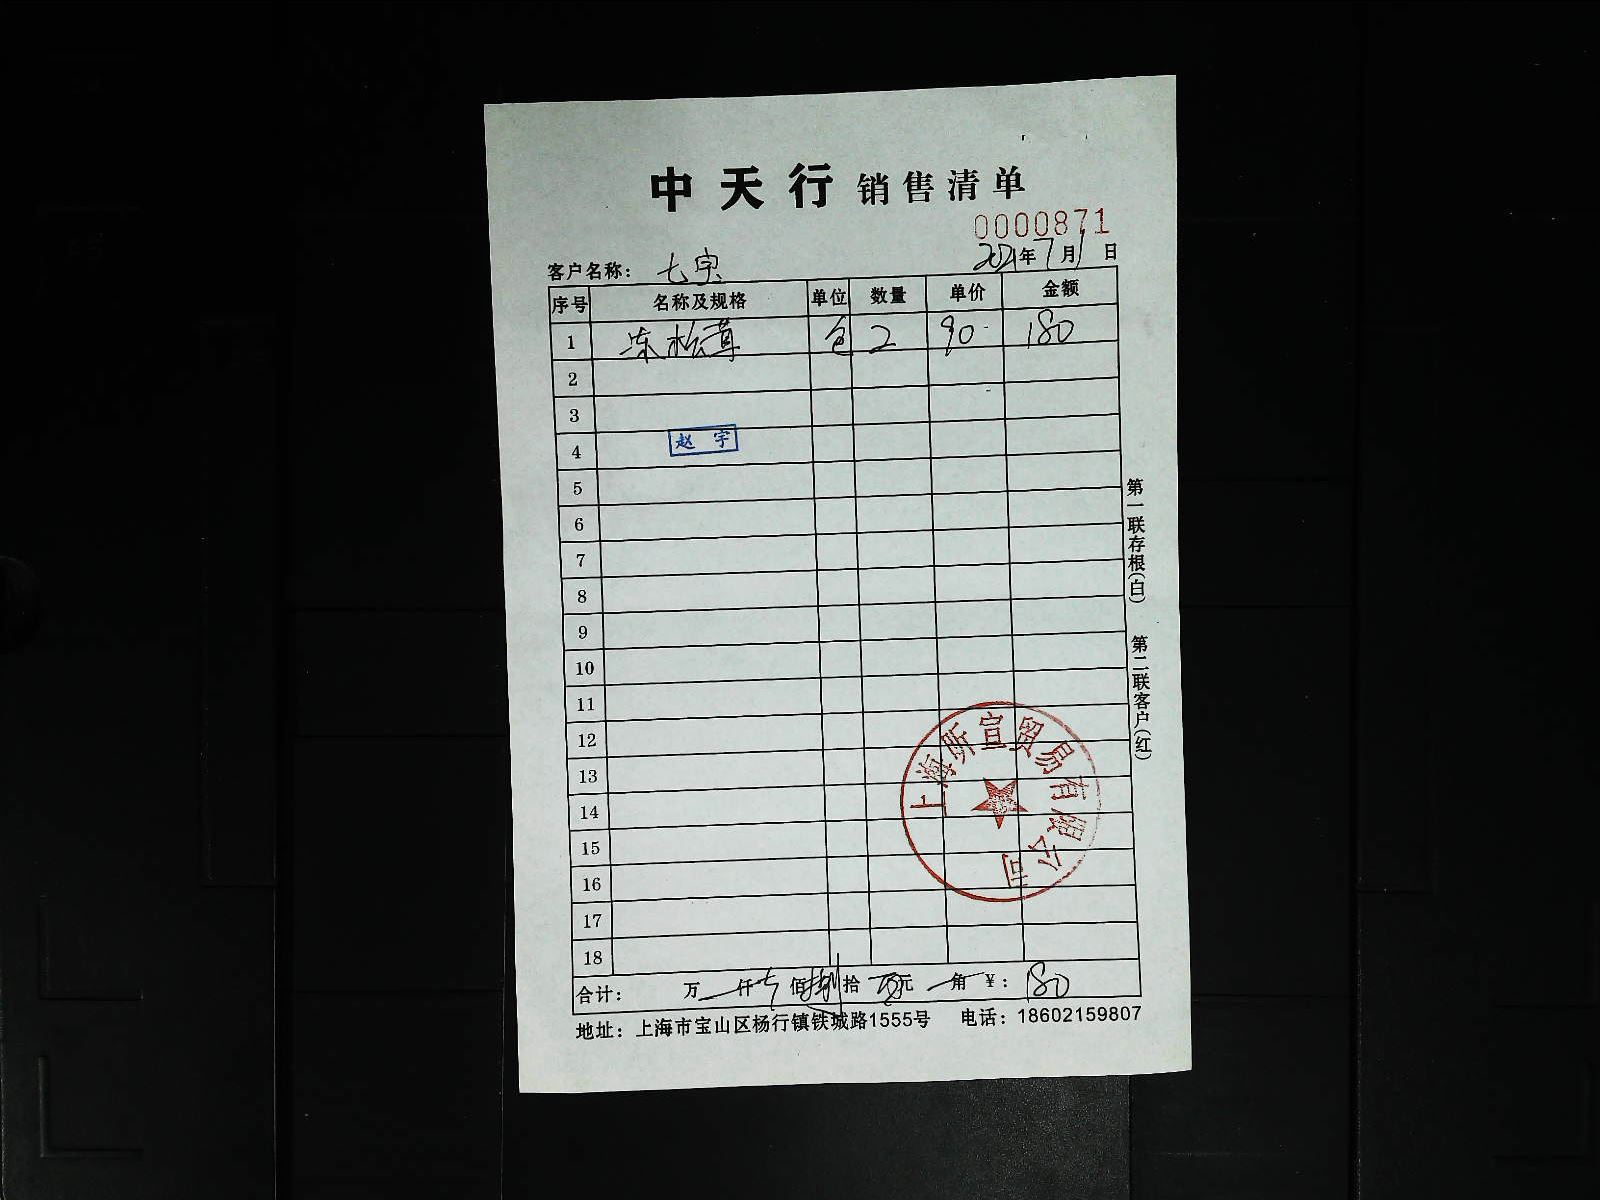 中天行 销售清单
0000871
客户名称： 七宝 2021年7月1日
序号 名称及规格 单位 数量 单价 金额
1 冻松茸 包 2 90 180
2
3
4 赵宇
5
6
7
8
9
10
11
12
13
14
15
16
17
18
上海昕宣贸易有限公司
合计： 万 仟 佰捌拾 元 角 ¥：180
地址：上海市宝山区杨行镇铁城路1555号 电话：18602159807
第一联存根(白) 第二联客户(红)